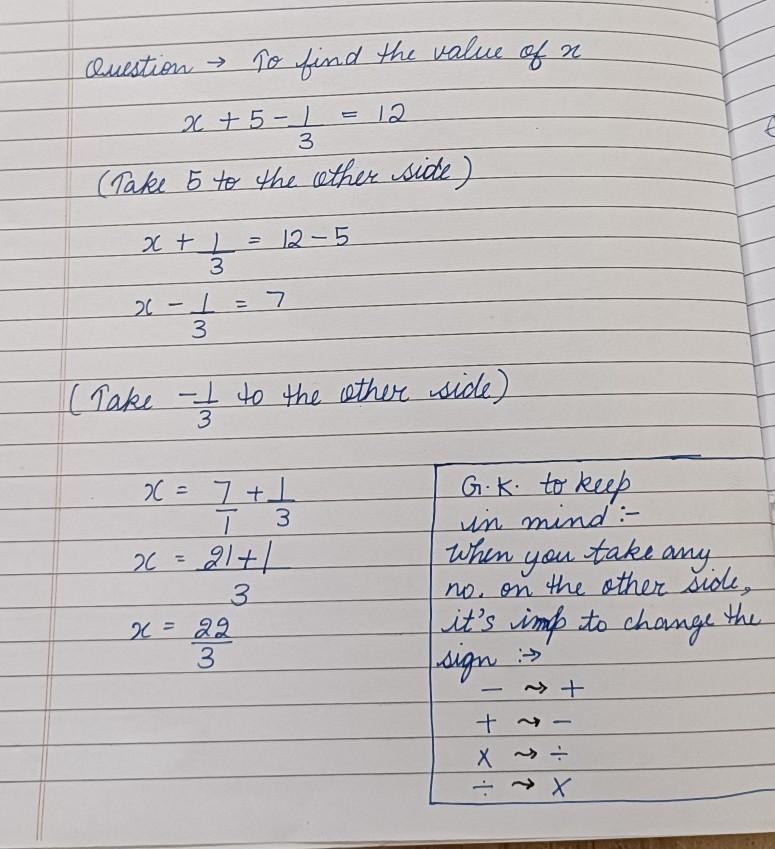 Question → To find the value of x
x + 5 - 1/3 = 12
(Take 5 to the other side)
x + 1/3 = 12 - 5
x - 1/3 = 7
(Take -1/3 to the other side)
x = 7/1 + 1/3
x = 21+1/3
x = 22/3
G.K. to keep
in mind :-
When you take any
no. on the other side,
it's imp to change the
sign :→
- ⇝ +
+ ⇝ -
× ⇝ ÷
÷ ⇝ ×